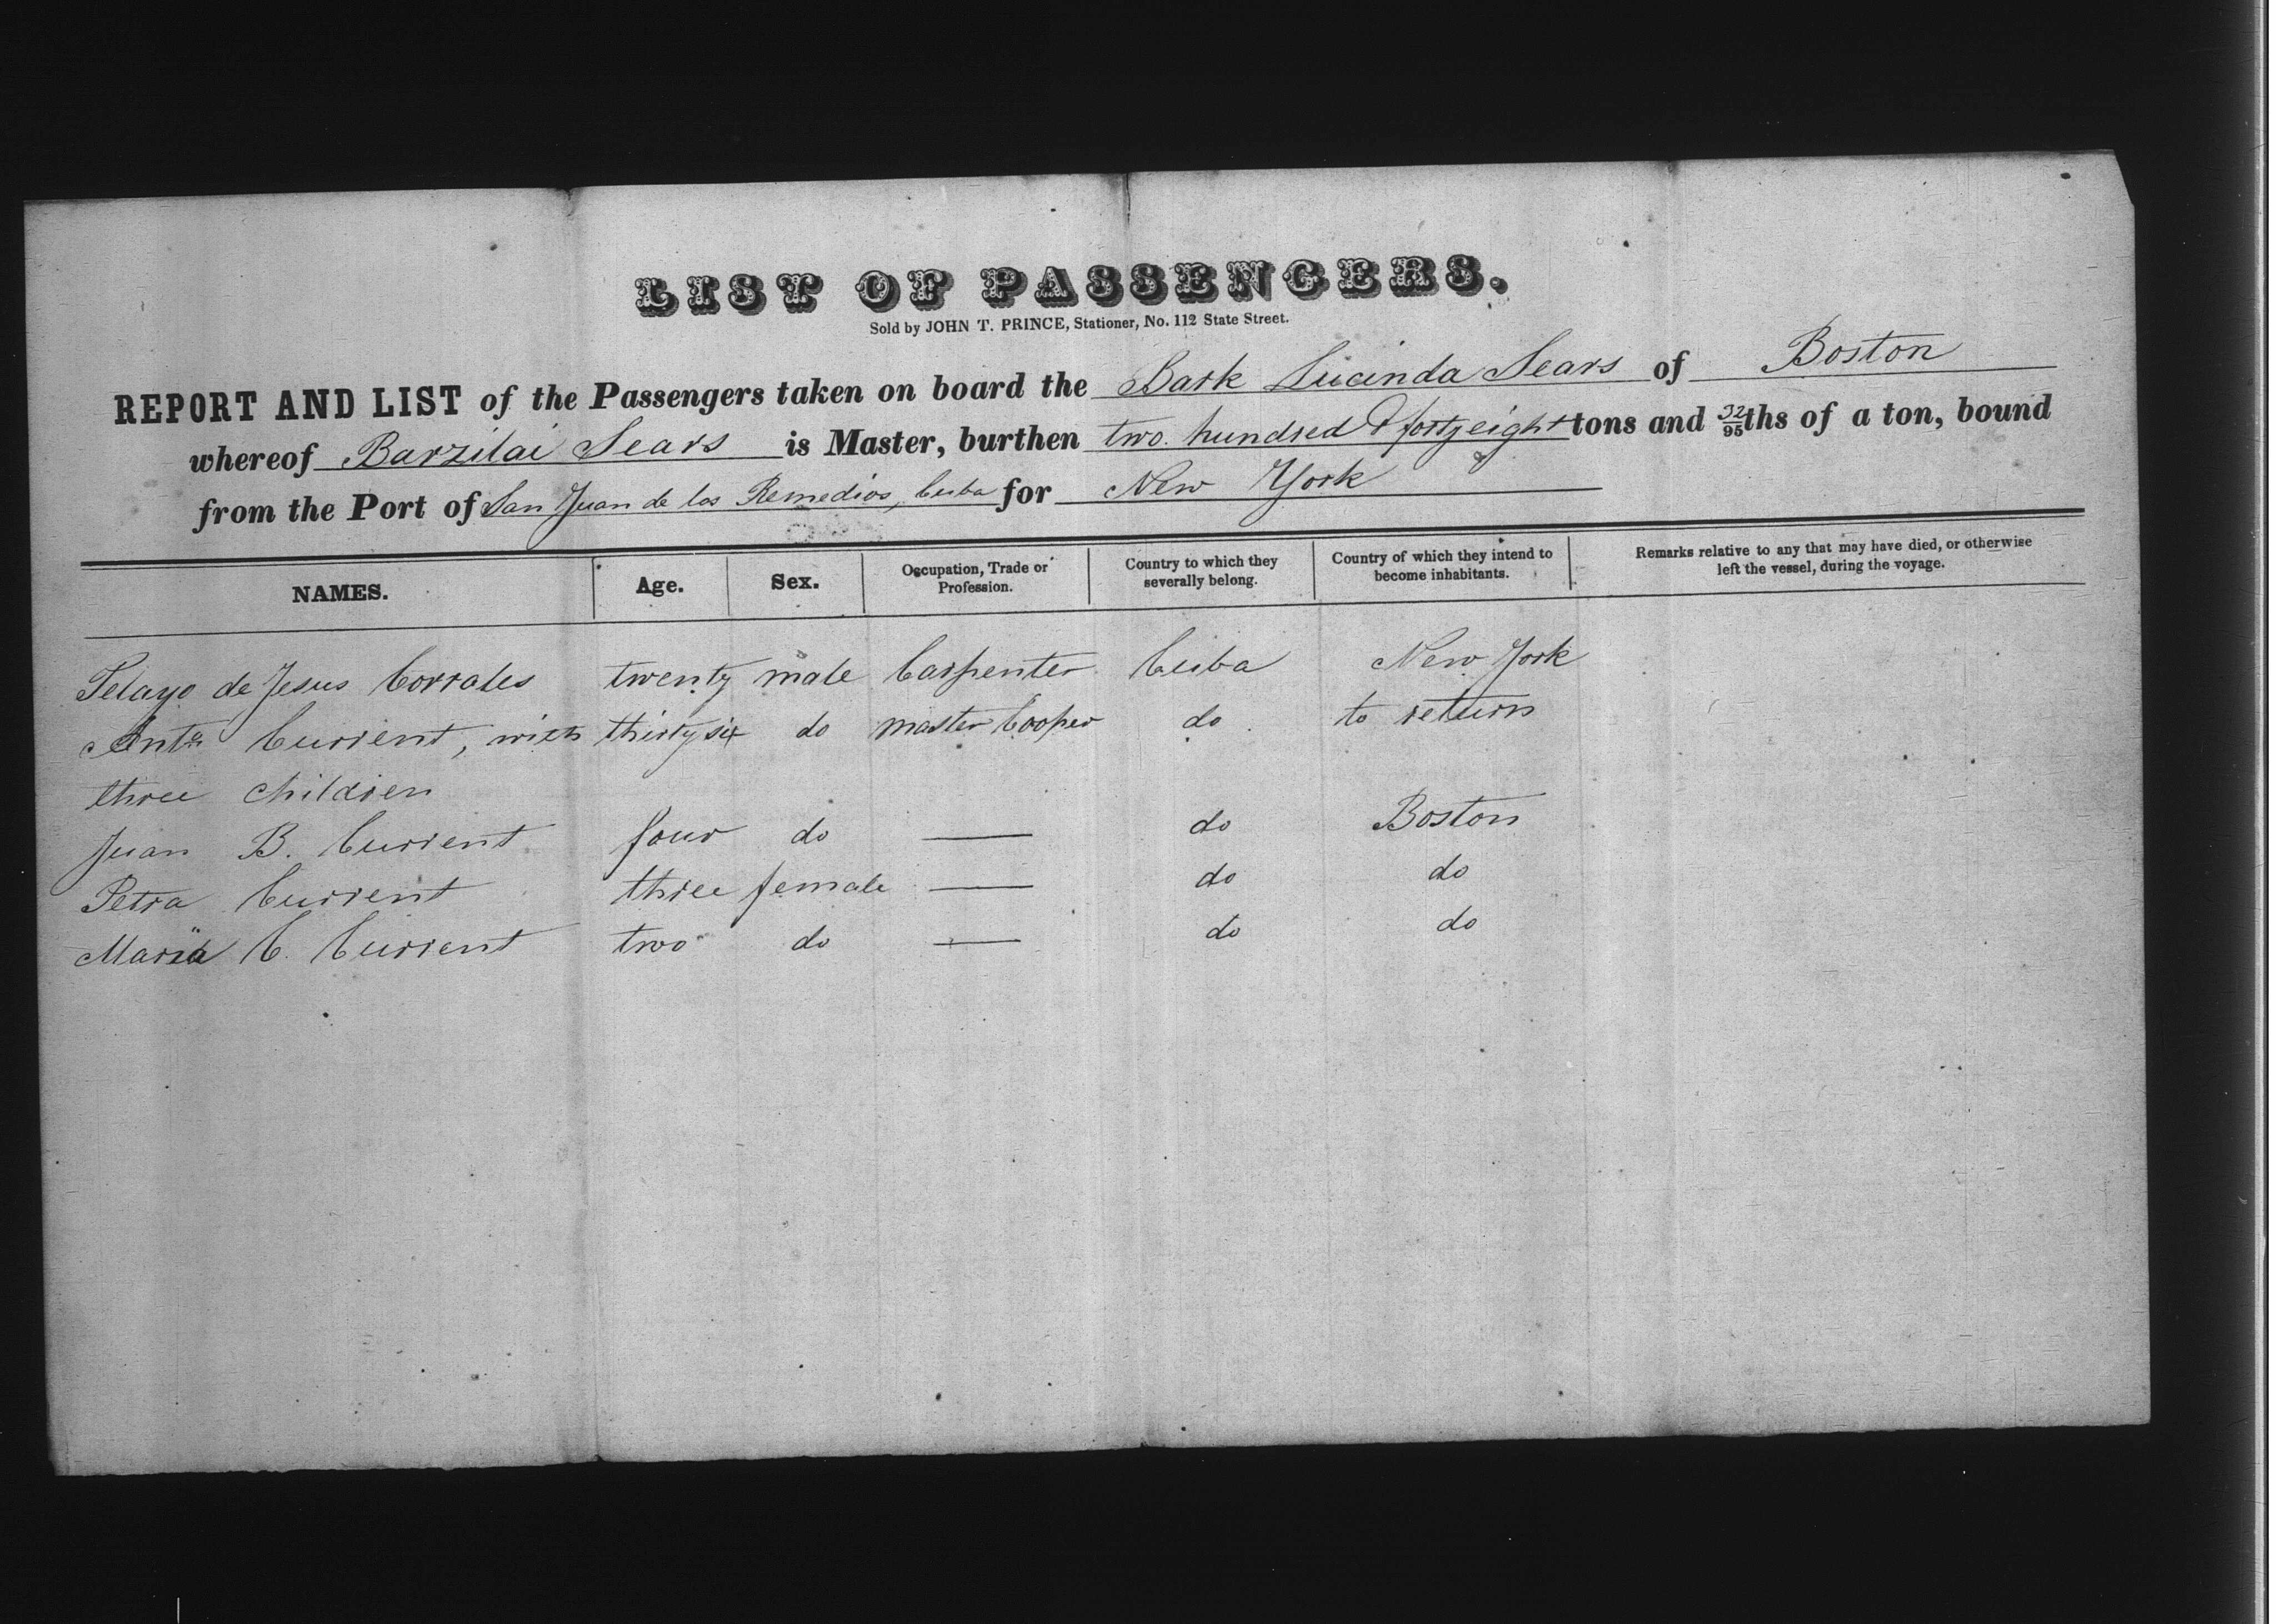 LIST OF PASSENGERS.
Sold by JOHN T. PRINCE, Stationer, No. 112 State Street.
REPORT AND LIST of the Passengers taken on board the Bark Lucinda Sears of Boston
whereof Barzilai Sears is Master, burthen two hundred & forty eight tons and 32/95ths of a ton, bound
from the Port of San Juan de los Remedios, Cuba for New York
NAMES. Age. Sex. Occupation, Trade or Profession. Country to which they severally belong. Country of which they intend to become inhabitants. Remarks relative to any that may have died, or otherwise left the vessel, during the voyage.
Pelayo de Jesus Corrales twenty male Carpenter Cuba New York
Anto Current, with thirty six do master Cooper do to return
three children
Juan B. Current four do — do Boston
Petra Current three female — do do
Maria C. Current two do — do do